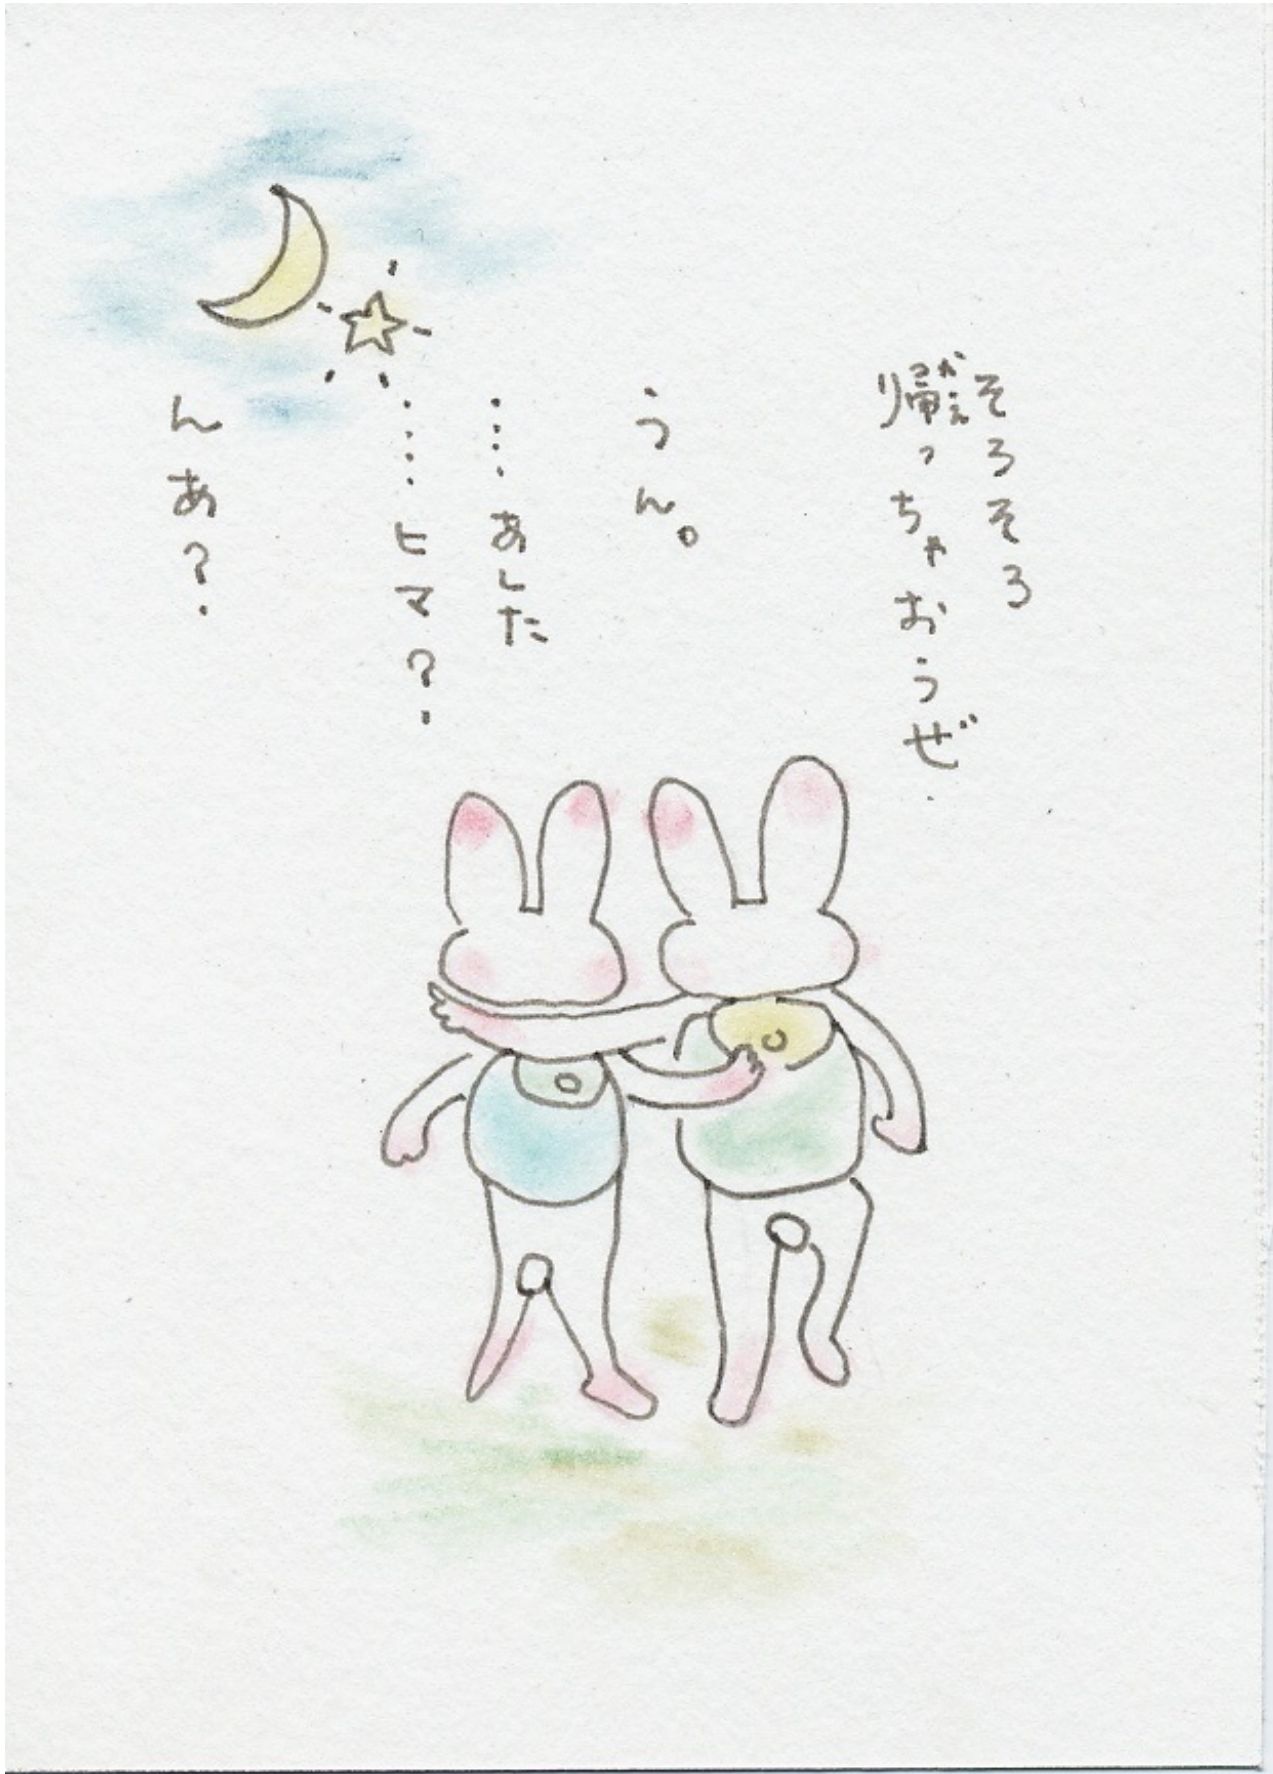 そろそろ
帰っちゃおうぜ
うん。
……あした
……ヒマ？
んあ？